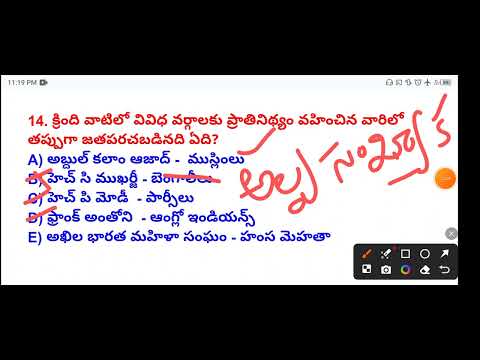 11:19 PM
14. క్రింది వాటిలో వివిధ వర్గాలకు ప్రాతినిథ్యం వహించిన వారిలో
తప్పుగా జతపరచబడినది ఏది?
A) అబ్దుల్ కలాం ఆజాద్ - ముస్లింలు
B) హెచ్ సి ముఖర్జీ - బెంగాలీలు
C) హెచ్ పి మోడీ - పార్సీలు
D) ఫ్రాంక్ అంతోని - ఆంగ్లో ఇండియన్స్
E) అఖిల భారత మహిళా సంఘం - హంస మెహతా
అల్ప సంఖ్యాక